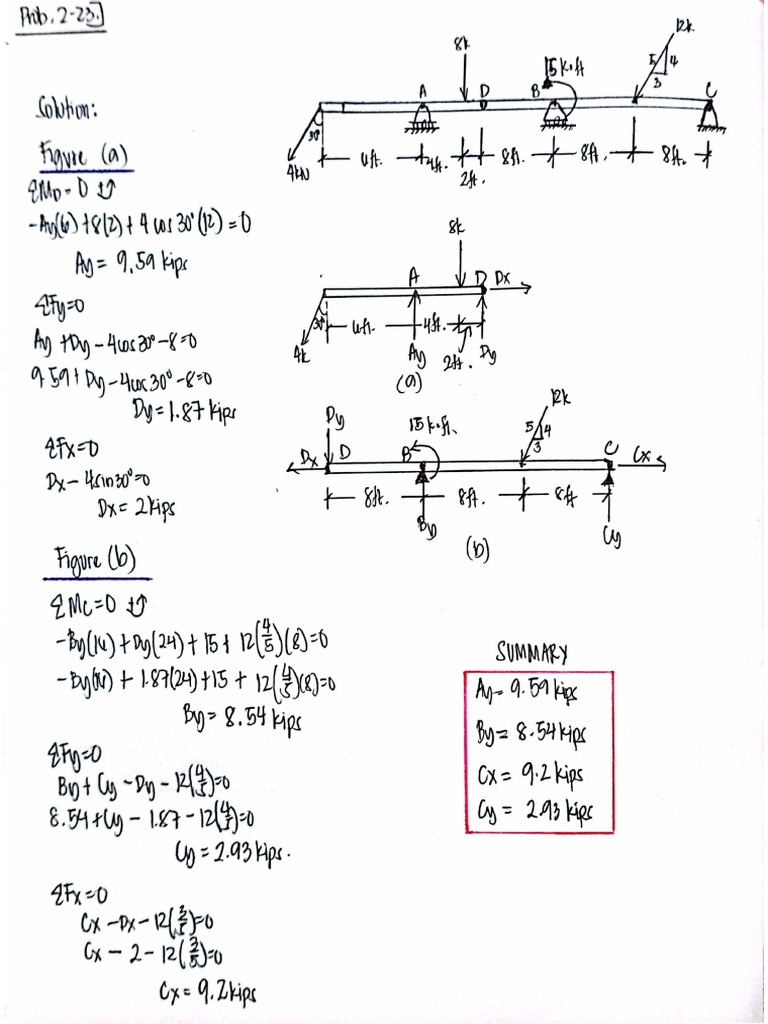 Prob. 2-23.
Solution:
Figure (a)
ΣMD=0 ↓↑
-Ay(6)+8(2)+4cos30°(12)=0
Ay=9.59 kips
ΣFy=0
Ay+Dy-4cos30°-8=0
9.59+Dy-4cos30°-8=0
Dy=1.87 kips
ΣFx=0
Dx-4sin30°=0
Dx=2kips
Figure (b)
ΣMC=0 ↓↑
-By(16)+Dy(24)+15+12(4/5)(8)=0
-By(16)+1.87(24)+15+12(4/5)(8)=0
By=8.54 kips
ΣFy=0
By+Cy-Dy-12(4/5)=0
8.54+Cy-1.87-12(4/5)=0
Cy=2.93 kips.
ΣFx=0
Cx-Dx-12(3/5)=0
Cx-2-12(3/5)=0
Cx=9.2kips
8k
12k
15k·ft
5 4
3
A D B C
30°
4kN
6ft. 4ft. 8ft. 8ft. 8ft.
2ft.
8k
A D Dx
30°
6ft. 4ft.
4k
Ay 2ft. Dy
(a)
12k
Dy 15k·ft. 5 4
3
Dx D B C Cx
8ft. 8ft. 8ft
By Cy
(b)
SUMMARY
Ay=9.59 kips
By=8.54kips
Cx=9.2 kips
Cy=2.93 kips